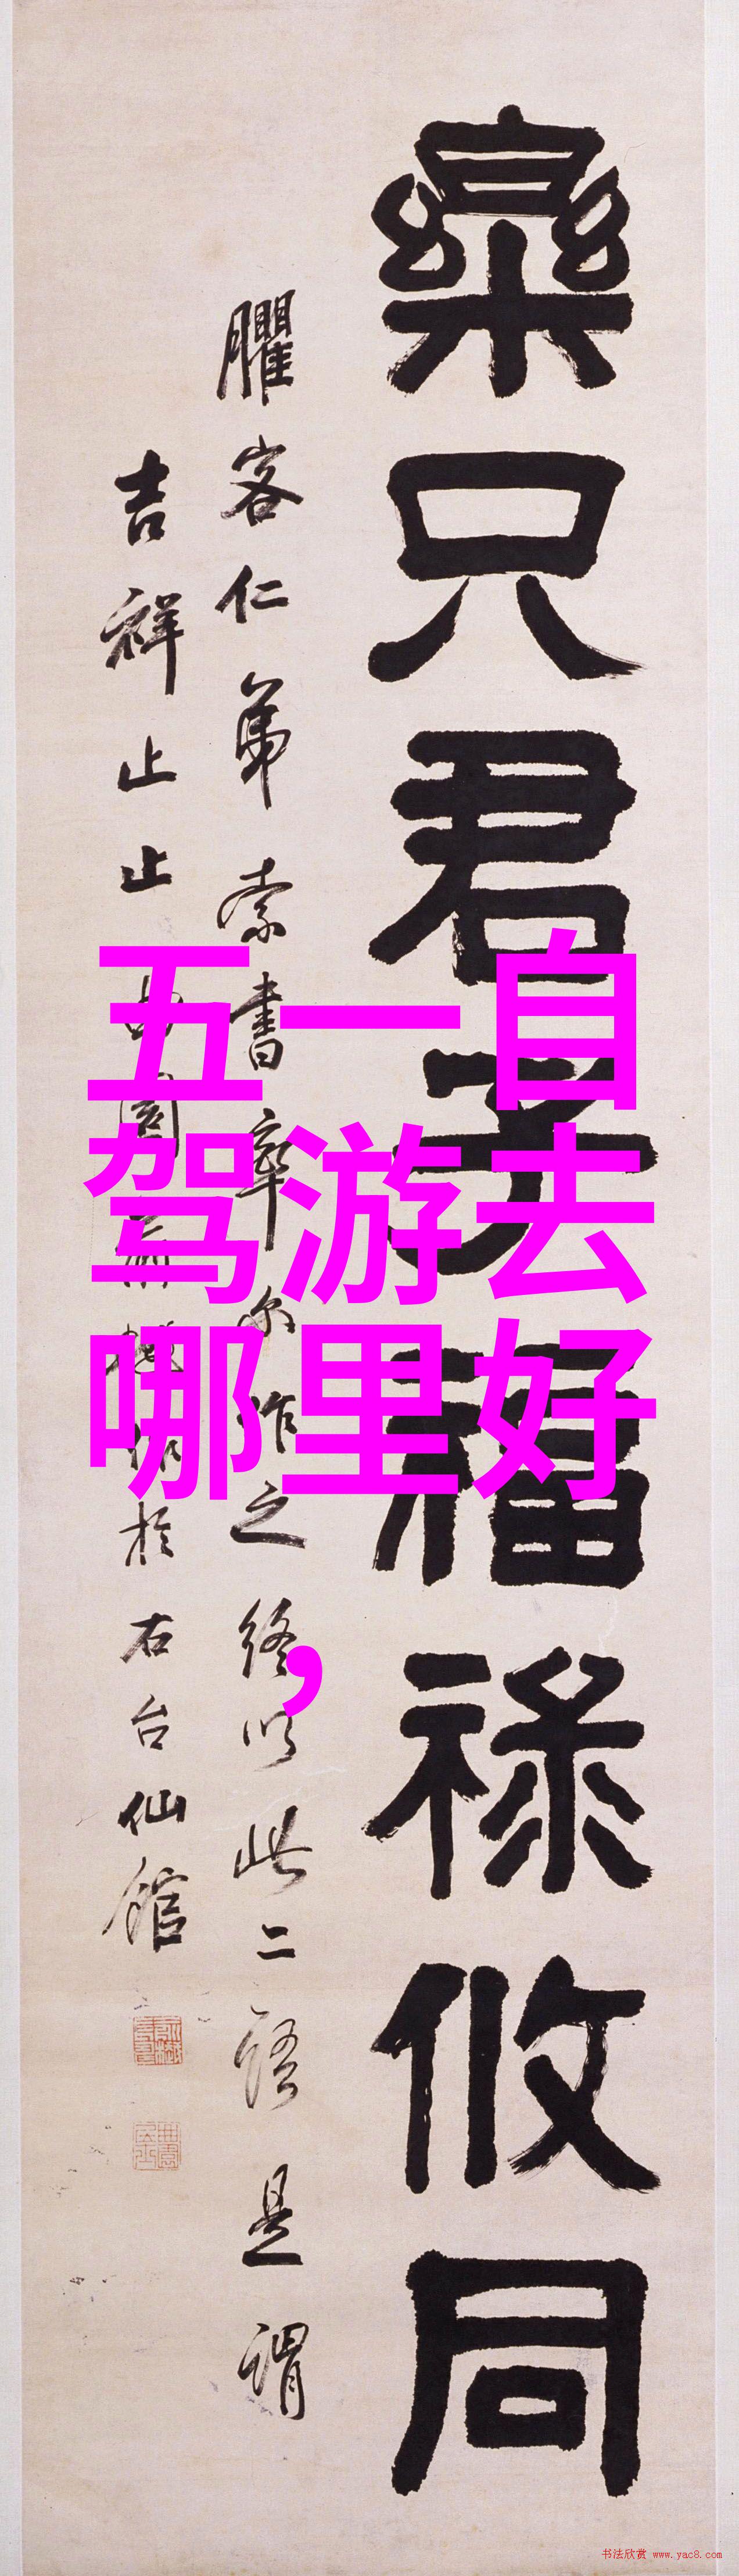 樂只君子福祿攸同
臞客仁弟索書率爾作之終以此二語是謂
吉祥止止
於右台仙館
五一自
驾游去
哪里好
，
书法欣赏 www.yac8.com